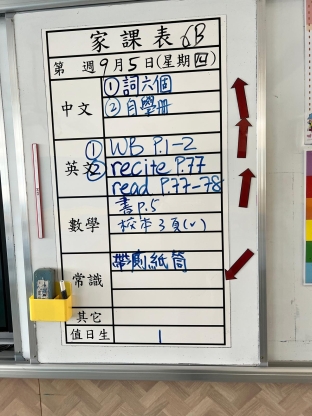 家課表 6B
第 週 9月5日(星期四)
中文 ①詞六個
②自學冊
英文 ① WB P.1-2
② recite P.77
read P.77-78
數學 書 P.5
校本3頁(v)
常識 帶厠紙筒
其它
值日生 1